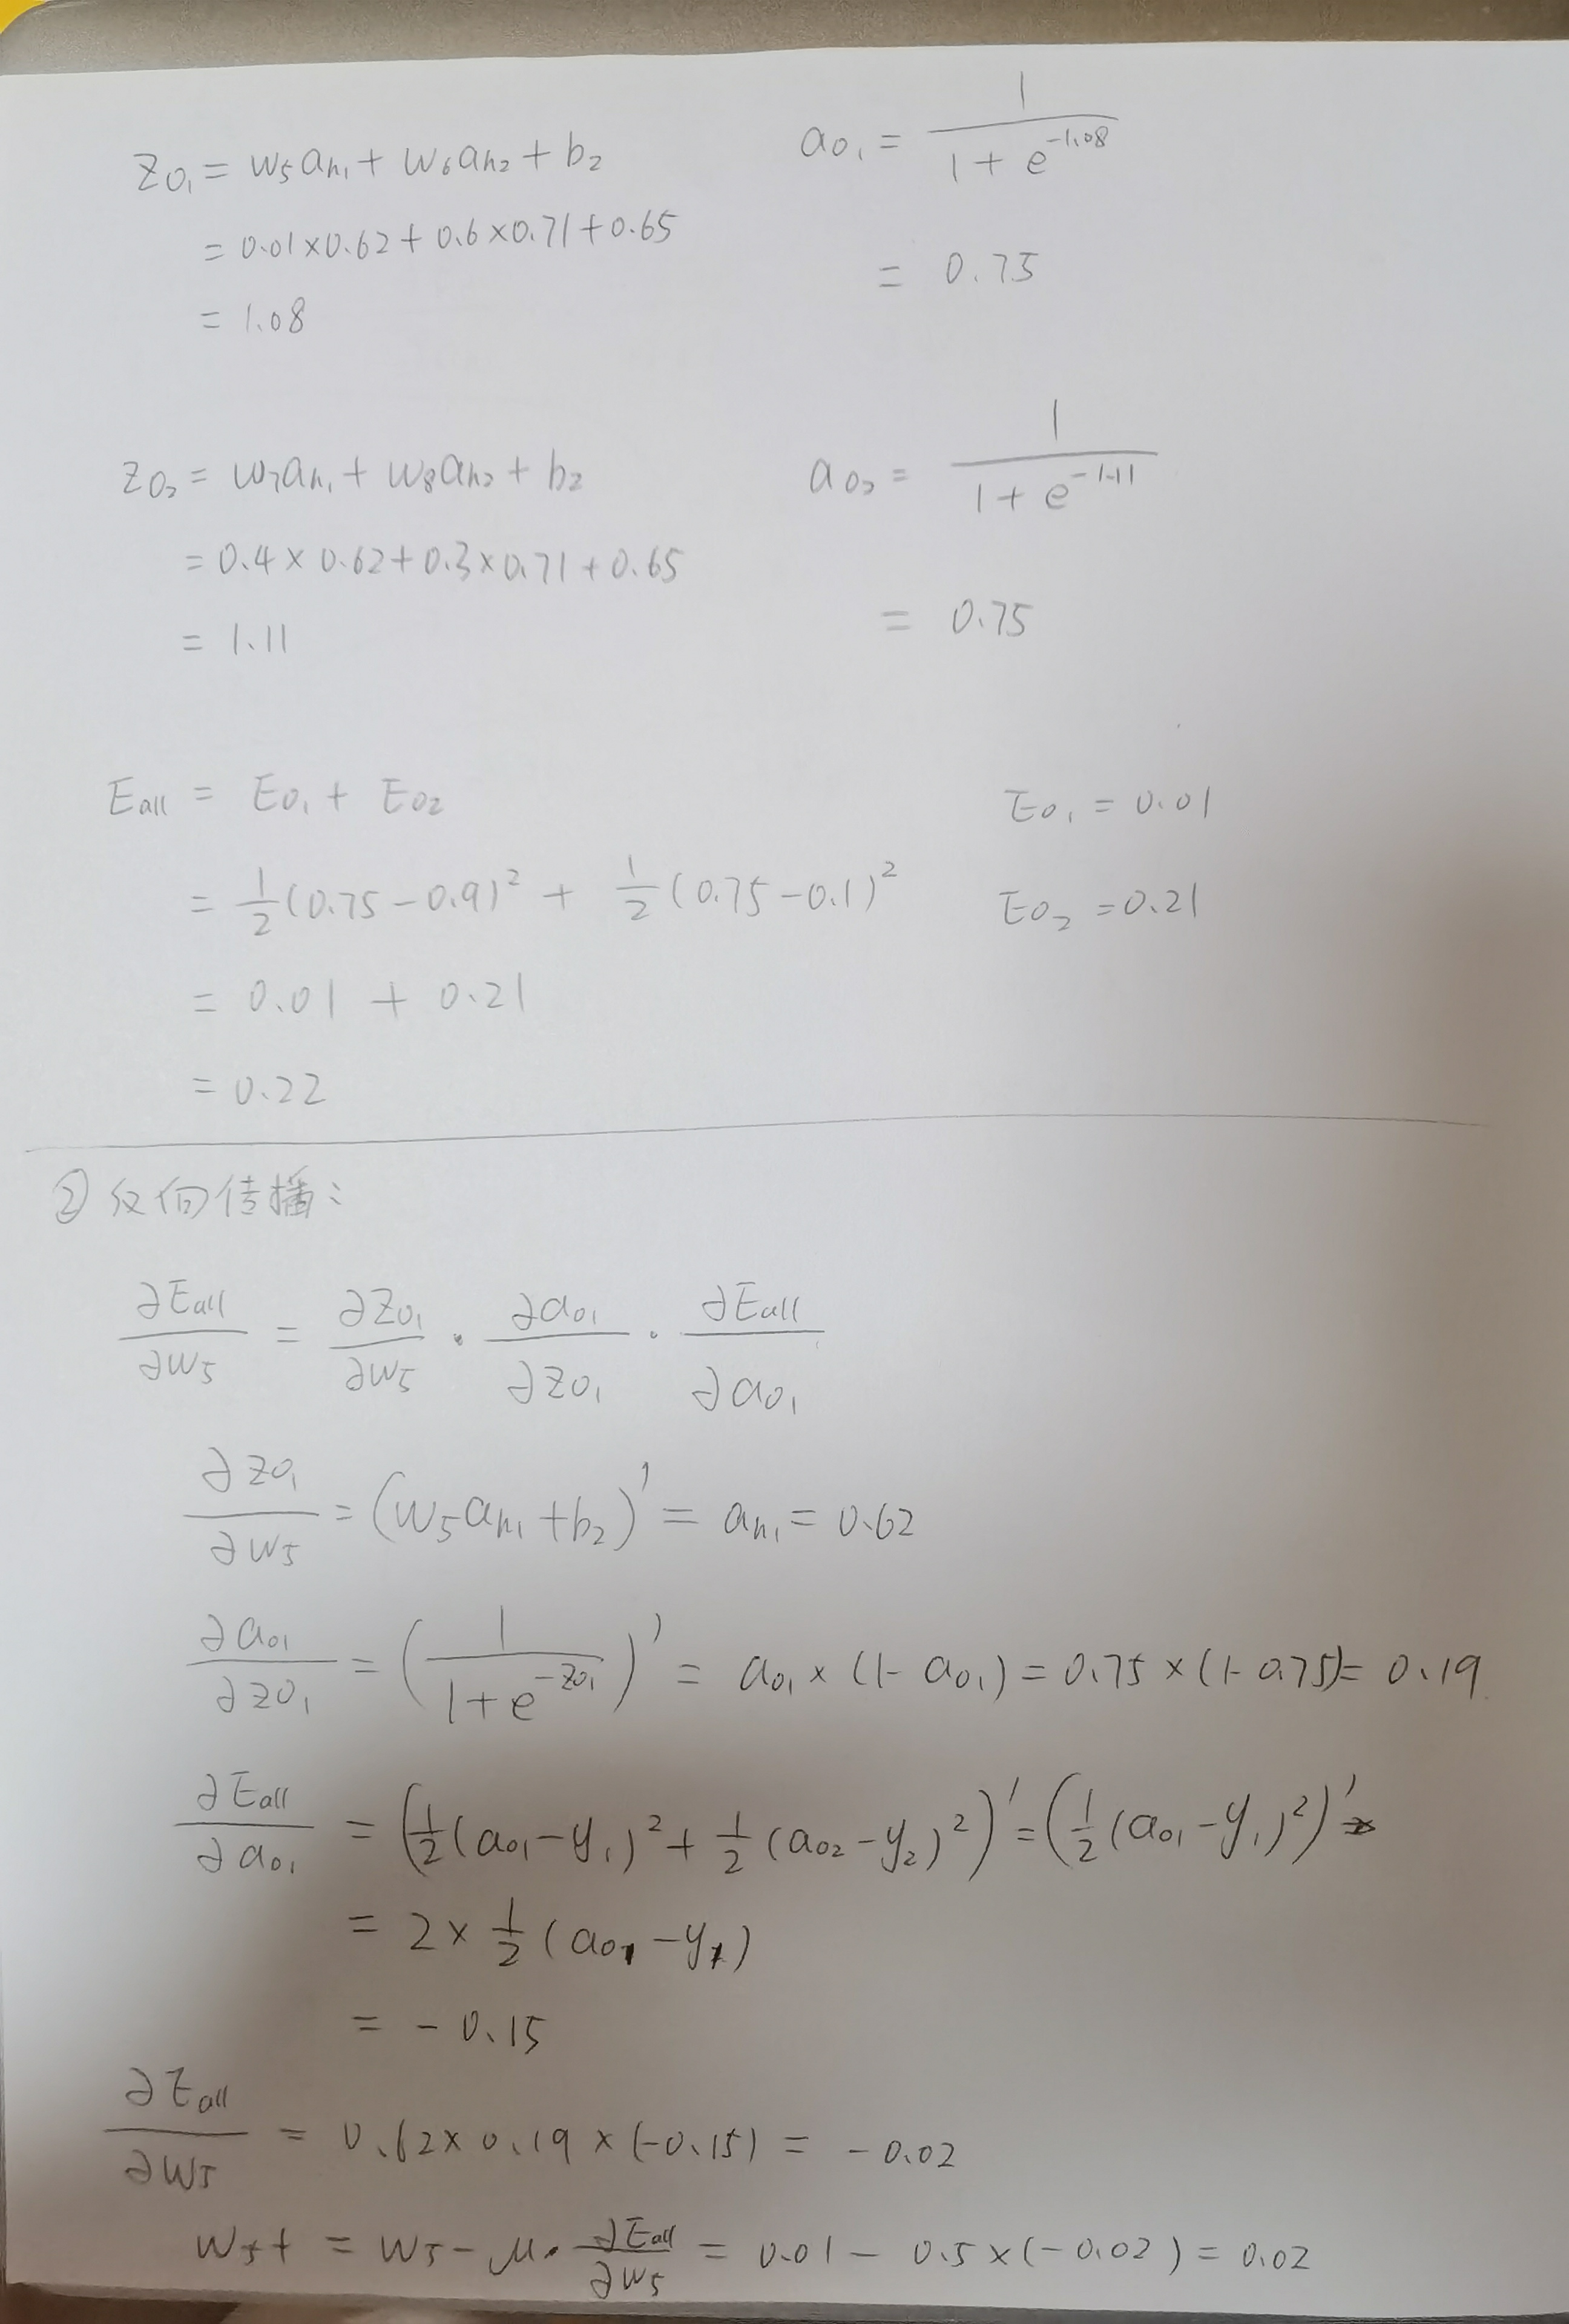 z₀₁ = w₅aₕ₁ + w₆aₕ₂ + b₂
= 0.01×0.62 + 0.6×0.71 + 0.65
= 1.08
a₀₁ = 1 / (1 + e^(-1.08))
= 0.75
z₀₂ = w₇aₕ₁ + w₈aₕ₂ + b₂
= 0.4 × 0.62 + 0.3×0.71 + 0.65
= 1.11
a₀₂ = 1 / (1 + e^(-1.11))
= 0.75
Eall = E₀₁ + E₀₂
= 1/2 (0.75 - 0.9)² + 1/2 (0.75 - 0.1)²
= 0.01 + 0.21
= 0.22
E₀₁ = 0.01
E₀₂ = 0.21
② 反向传播:
∂Eall/∂w₅ = ∂z₀₁/∂w₅ · ∂a₀₁/∂z₀₁ · ∂Eall/∂a₀₁
∂z₀₁/∂w₅ = (w₅aₕ₁ + b₂)' = aₕ₁ = 0.62
∂a₀₁/∂z₀₁ = (1 / (1 + e^(-z₀₁)))' = a₀₁ × (1 - a₀₁) = 0.75 × (1 - 0.75) = 0.19
∂Eall/∂a₀₁ = (1/2 (a₀₁ - y₁)² + 1/2 (a₀₂ - y₂)²)' = (1/2 (a₀₁ - y₁)²)'
= 2 × 1/2 (a₀₁ - y₁)
= - 0.15
∂Eall/∂w₅ = 0.62 × 0.19 × (-0.15) = -0.02
w₅+ = w₅ - μ · ∂Eall/∂w₅ = 0.01 - 0.5 × (-0.02) = 0.02